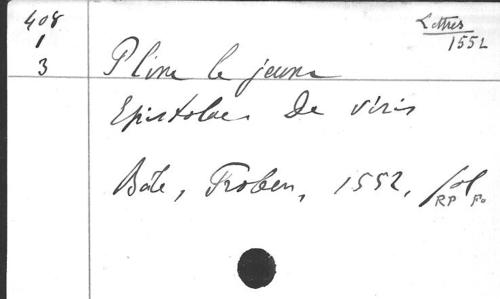 408
1
3
Lettres
1552
Pline le jeune
Epistolae De viris
Bâle, Froben, 1552, fol
RP Fo